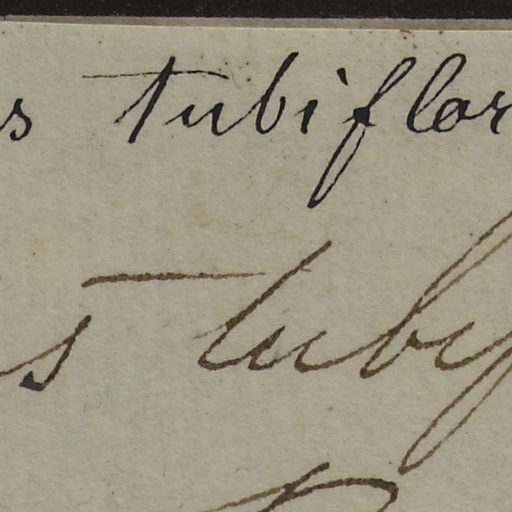 s tubiflor
s tubif